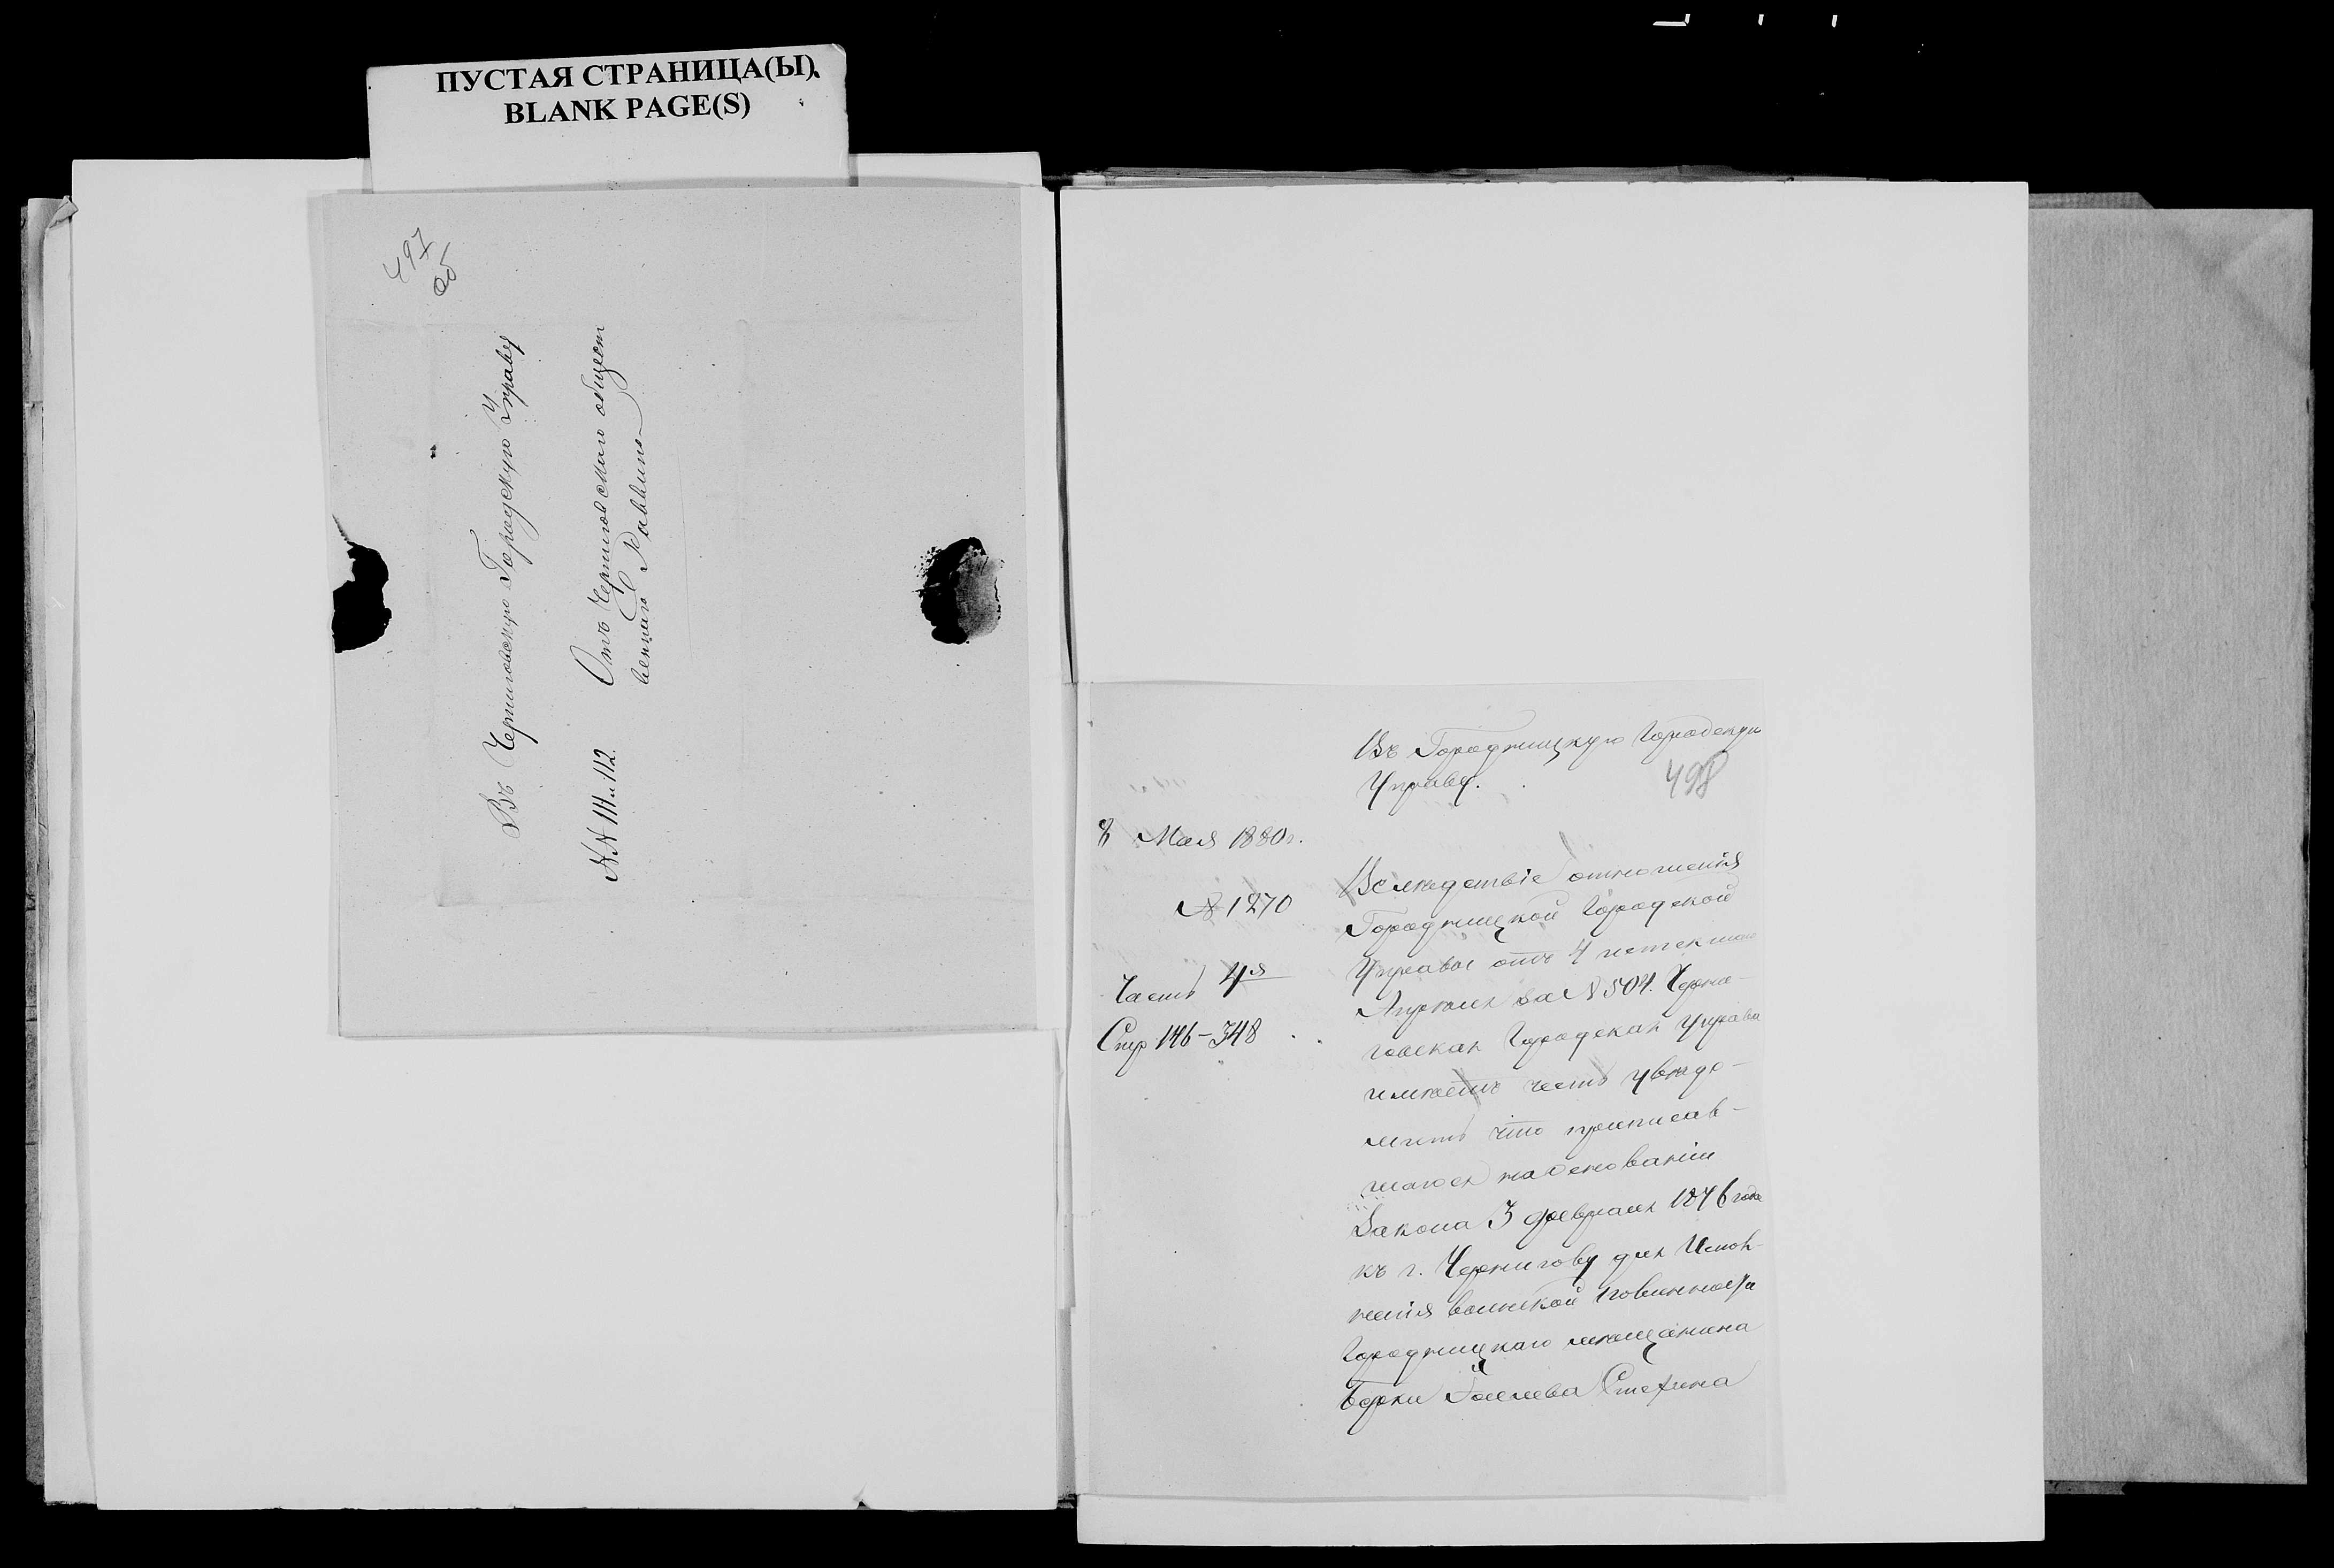 ПУСТАЯ СТРАНИЦА(Ы)
BLANK PAGE(S)
497
об
Въ Черниговскую Городскую Управу
Отъ Черниговскаго общест
веннаго Раввина
№№ 111 и 112.
Въ Городницкую Городскую
Управу.
498
8 Мая 1880 г.
№ 1270
Часть 4я
Стр. 146-348
Вследствіе отношенія
Городницкой Городской
Управы отъ 4 истекшаго
Апреля за № 504. Черни-
говская Городская Управа
имѣетъ честь уведо-
мить что приписав-
шагося на основаніи
Закона 3 февраля 1876 года
къ г. Чернигову для Испол-
ненія воинской повинности
Городницкаго мѣщанина
Берки